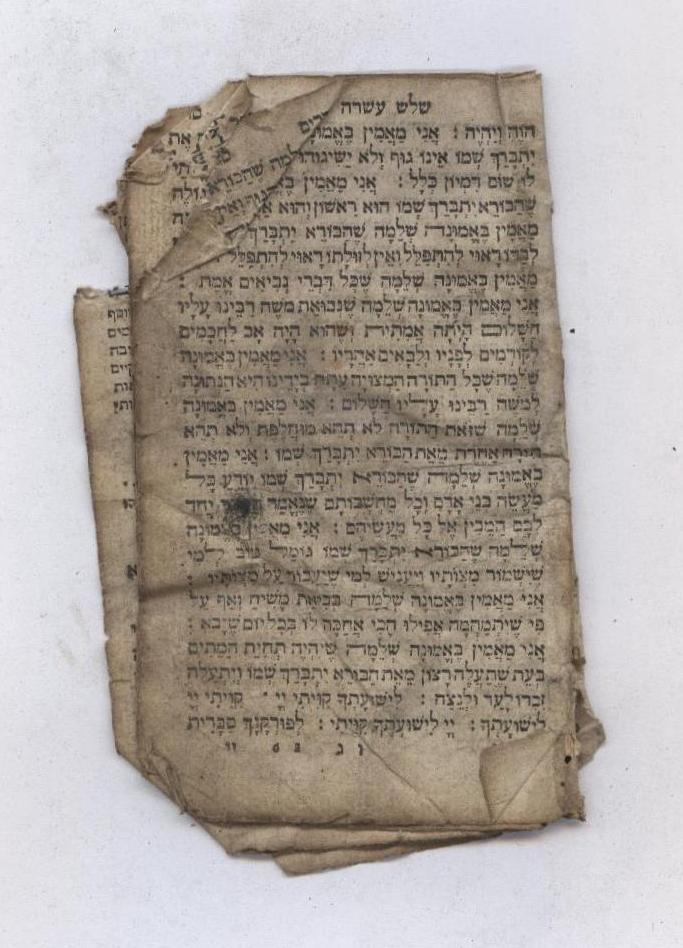 שלש עשרה
הוֹוֶה וְיִהְיֶה : אֲנִי מַאֲמִין בֶּאֱמוּנָה
יִתְבָּרֵךְ שְׁמוֹ אֵינוֹ גוּף וְלֹא יַשִּׂיגוּהוּ
לוֹ שׁוּם דִּמְיוֹן כְּלָל : אֲנִי מַאֲמִין
שֶׁהַבּוֹרֵא יִתְבָּרֵךְ שְׁמוֹ הוּא רִאשׁוֹן וְהוּא
מַאֲמִין בֶּאֱמוּנָה שְׁלֵמָה שֶׁהַבּוֹרֵא יִתְבָּרֵךְ
לְבַדּוֹ רָאוּי לְהִתְפַּלֵּל וְאֵין לְזוּלָתוֹ רָאוּי לְהִתְפַּלֵּל
מַאֲמִין בֶּאֱמוּנָה שְׁלֵמָה שֶׁכָּל דִּבְרֵי נְבִיאִים אֱמֶת :
אֲנִי מַאֲמִין בֶּאֱמוּנָה שְׁלֵמָה שֶׁנְּבוּאַת משֶׁה רַבֵּינוּ עָלָיו
הַשָּׁלוֹם הָיְתָה אֲמִתִּית וְשֶׁהוּא הָיָה אָב לַחֲכָמִים
לְקוֹדְמִים לְפָנָיו וְלַבָּאִים אַחֲרָיו : אֲנִי מַאֲמִין בֶּאֱמוּנָה
שְׁלֵמָה שֶׁכָּל הַתּוֹרָה הַמְּצוּיָה עַתָּה בְיָדֵינוּ הִיא הַנְּתוּנָה
לְמשֶׁה רַבֵּינוּ עָלָיו הַשָּׁלוֹם : אֲנִי מַאֲמִין בֶּאֱמוּנָה
שְׁלֵמָה שֶׁזֹּאת הַתּוֹרָה לֹא תְהֵא מוּחְלֶפֶת וְלֹא תְהֵא
תּוֹרָה אַחֶרֶת מֵאֵת הַבּוֹרֵא יִתְבָּרֵךְ שְׁמוֹ : אֲנִי מַאֲמִין
בֶּאֱמוּנָה שְׁלֵמָה שֶׁהַבּוֹרֵא יִתְבָּרֵךְ שְׁמוֹ יוֹדֵעַ כָּל
מַעֲשֵׂה בְּנֵי אָדָם וְכָל מַחְשְׁבוֹתָם שֶׁנֶּאֱמַר יַחַד
לִבָּם הַמֵּבִין אֶל כָּל מַעֲשֵׂיהֶם : אֲנִי מַאֲמִין בֶּאֱמוּנָה
שְׁלֵמָה שֶׁהַבּוֹרֵא יִתְבָּרֵךְ שְׁמוֹ גּוֹמֵל טוֹב לְמִי
שֶׁיִּשְׁמוֹר מִצְוֹתָיו וְיַעֲנִישׁ לְמִי שֶׁיַּעֲבוֹר עַל מִצְוֹתָיו :
אֲנִי מַאֲמִין בֶּאֱמוּנָה שְׁלֵמָה בְּבִיאַת מָשִׁיחַ וְאַף עַל
פִּי שֶׁיִּתְמַהְמֵהַּ אֲפִילוּ הָכִי אֲחַכֶּה לוֹ בְּכָל יוֹם שֶׁיָּבֹא :
אֲנִי מַאֲמִין בֶּאֱמוּנָה שְׁלֵמָה שֶׁיִּהְיֶה תְּחִיַּת הַמֵּתִים
בְּעֵת שֶׁתַּעֲלֶה רָצוֹן מֵאֵת הַבּוֹרֵא יִתְבָּרֵךְ שְׁמוֹ וְיִתְעַלֶּה
זִכְרוֹ לָעַד וְלָנֶצַח : לִישׁוּעָתְךָ קִוִּיתִי יְיָ קִוִּיתִי יְיָ
לִישׁוּעָתְךָ : יְיָ לִישׁוּעָתְךָ קִוִּיתִי : לְפוּרְקָנָךְ סַבָּרִית